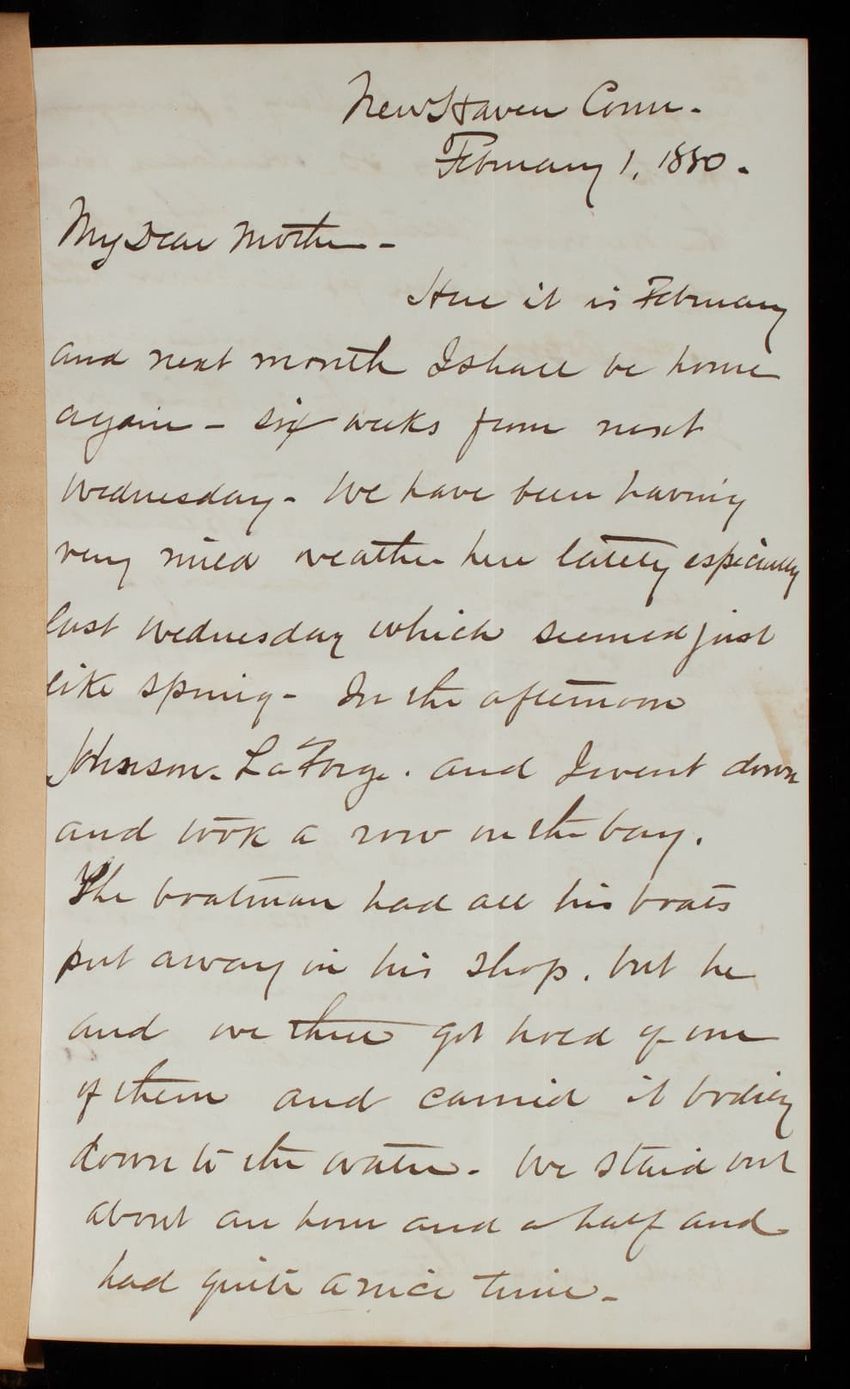 New Haven Conn.
February 1, 1880.
My Dear Mother -
Here it is February
and next month I shall be home
again - six weeks from next
Wednesday - We have been having
very mild weather here lately especially
last Wednesday which seemed just
like spring - In the afternoon
Johnson. La Forge. and I went down
and took a row on the bay.
The boatman had all his boats
put away in his shop. but he
and we three got hold of one
of them and carried it bodily
down to the water. We staid out
about an hour and a half and
had quite a nice time.